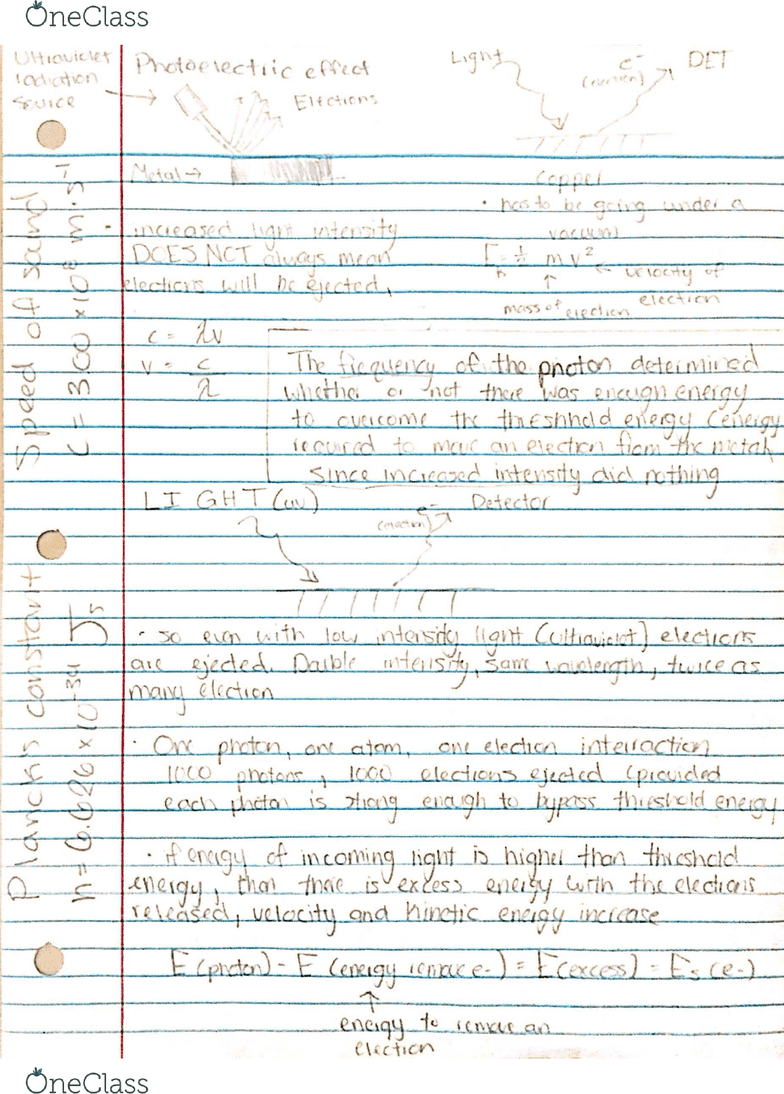 OneClass
Ultraviolet
radiation
source
Photoelectric effect
Electrons
Metal →
Light
e-
(electron)
DET
Copper
• has to be going under a
vacuum
E = ½ m v²
velocity of
electron
mass of electron
• increased light intensity
DOES NOT always mean
electrons will be ejected,
c = λv
v = c
λ
Speed of sand
c = 3.00 x 10⁸ m·s⁻¹
The frequency of the photon determined
whether or not there was enough energy
to overcome the threshhold energy (energy
required to move an electron from the metal,
since increased intensity did nothing
LIGHT (uv)
e-
(electron)
Detector
Planck's constant
h = 6.626 x 10⁻³⁴ Js
• so even with low intensity light (ultraviolet) electrons
are ejected. Double intensity, same wavelength, twice as
many electron
• One photon, one atom, one electron interraction
1000 photons, 1000 electrons ejected (provided
each photon is strong enough to bypass threshold energy
• if energy of incoming light is higher than threshold
energy, than there is excess energy with the electrons
released, velocity and kinetic energy increase
E (photon) - E (energy remove e-) = E (excess) = E₅ (e-)
energy to remove an
electron
OneClass